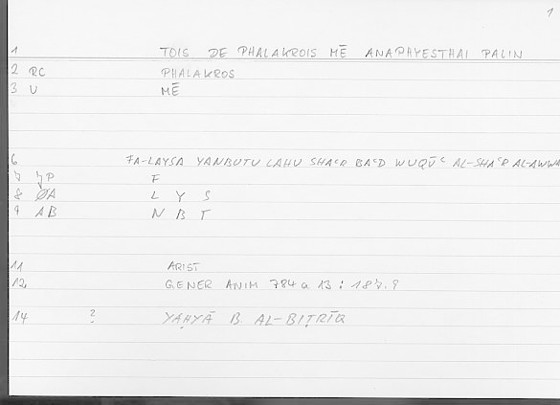 1
1 TOIS DE PHALAKROIS MĒ ANAPHYESTHAI PALIN
2 RC PHALAKROS
3 U MĒ
6 FA-LAYSA YANBUTU LAHU SHAʿR BAʿD WUQŪʿ AL-SHAʿR AL-AWWA
7 P F
8 ØA L Y S
9 AB N B T
11 ARIST
12 GENER ANIM 784 a 13 : 187.9
14 ? YAḤYĀ B AL-BIṬRĪQ